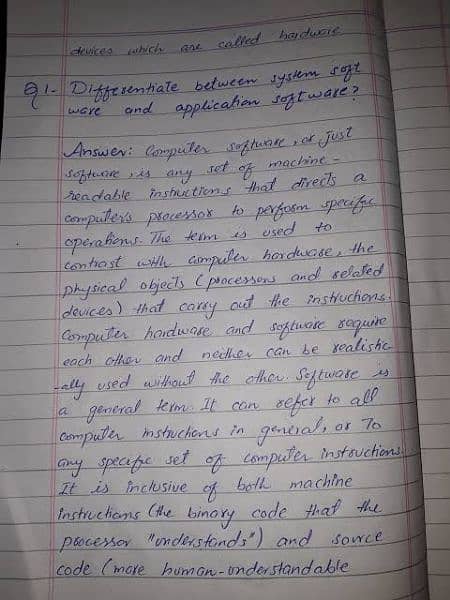 devices which are called hardware
Q1- Differentiate between system soft
ware and application software?
Answer: Computer software, or just
software, is any set of machine-
readable instructions that directs a
computer's processor to perform specific
operations. The term is used to
contrast with computer hardware, the
physical objects (processors and related
devices) that carry out the instructions.
Computer hardware and software require
each other and neither can be realistic
-ally used without the other. Software is
a general term. It can refer to all
computer instructions in general, or To
any specific set of computer instructions.
It is inclusive of both machine
instructions (the binary code that the
processor "understands") and source
code (more human-understandable